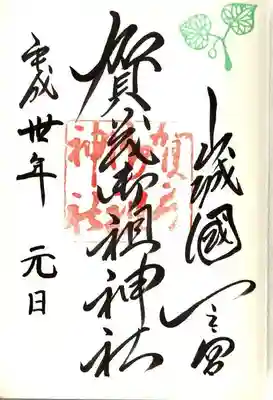 山城國一之宮
賀茂御祖神社
平成卅年 元日